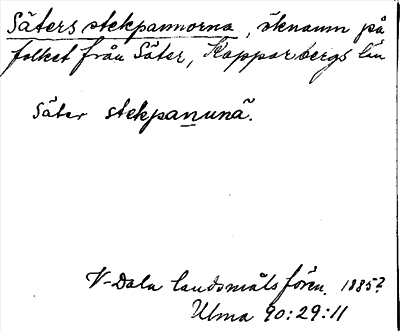 Säters stekpannorna, öknamn på
folket från Säter, Kopparbergs län
Säter stekpanunä̃.
V-Dala landsmålsfören. 1885?
Ulma 90:29:11